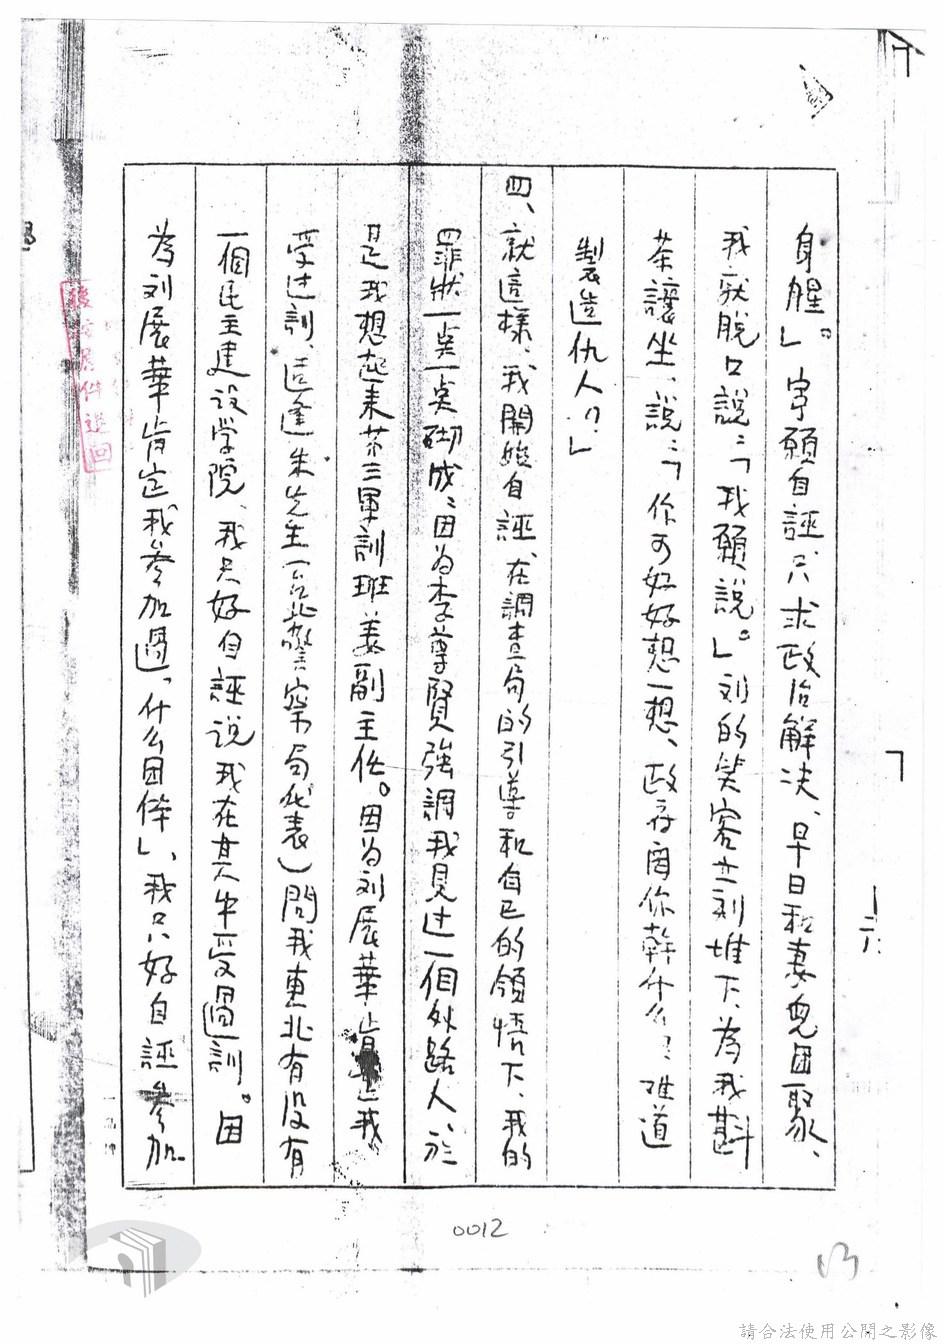 身腥」。宁願自誣、只求政治解决、早日和妻兒团聚、
我就脫口說：「我願說。」刘的笑容立刻堆下、為我斟
茶讓坐、說：「你可好好想一想、政府図你幹什么？难道
製造仇人？」
四、就這樣、我開始自誣、在調查局的引導和自己的領悟下、我的
罪狀一点一点砌成：因为李尊賢強調我見过一個外路人、於
是我想起来芥三軍訓班姜副主任。因为刘展華肯定我
受过訓、适逢朱先生（台北警察局代表）問我東北有没有
一個民主建设学院、我只好自誣说我在其中受過訓。因
為刘展華肯定我參加過「什么团体」、我只好自誣參加
0012
13
請合法使用公開之影像